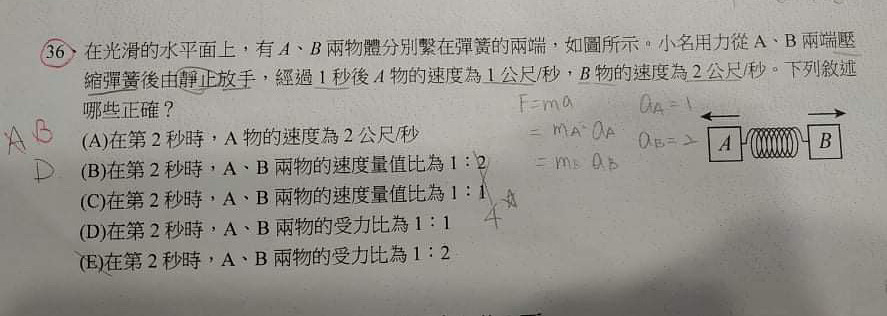 36、在光滑的水平面上，有A、B兩物體分別繫在彈簧的兩端，如圖所示。小名用力從A、B兩端壓
縮彈簧後由靜止放手，經過1秒後A物的速度為1公尺/秒，B物的速度為2公尺/秒。下列敘述
哪些正確？
F=ma
aA=1
= mA·aA
aB=2
= mB aB
A B
A
B
D.
(A)在第2秒時，A物的速度為2公尺/秒
(B)在第2秒時，A、B兩物的速度量值比為1：2
(C)在第2秒時，A、B兩物的速度量值比為1：1
(D)在第2秒時，A、B兩物的受力比為1：1
(E)在第2秒時，A、B兩物的受力比為1：2